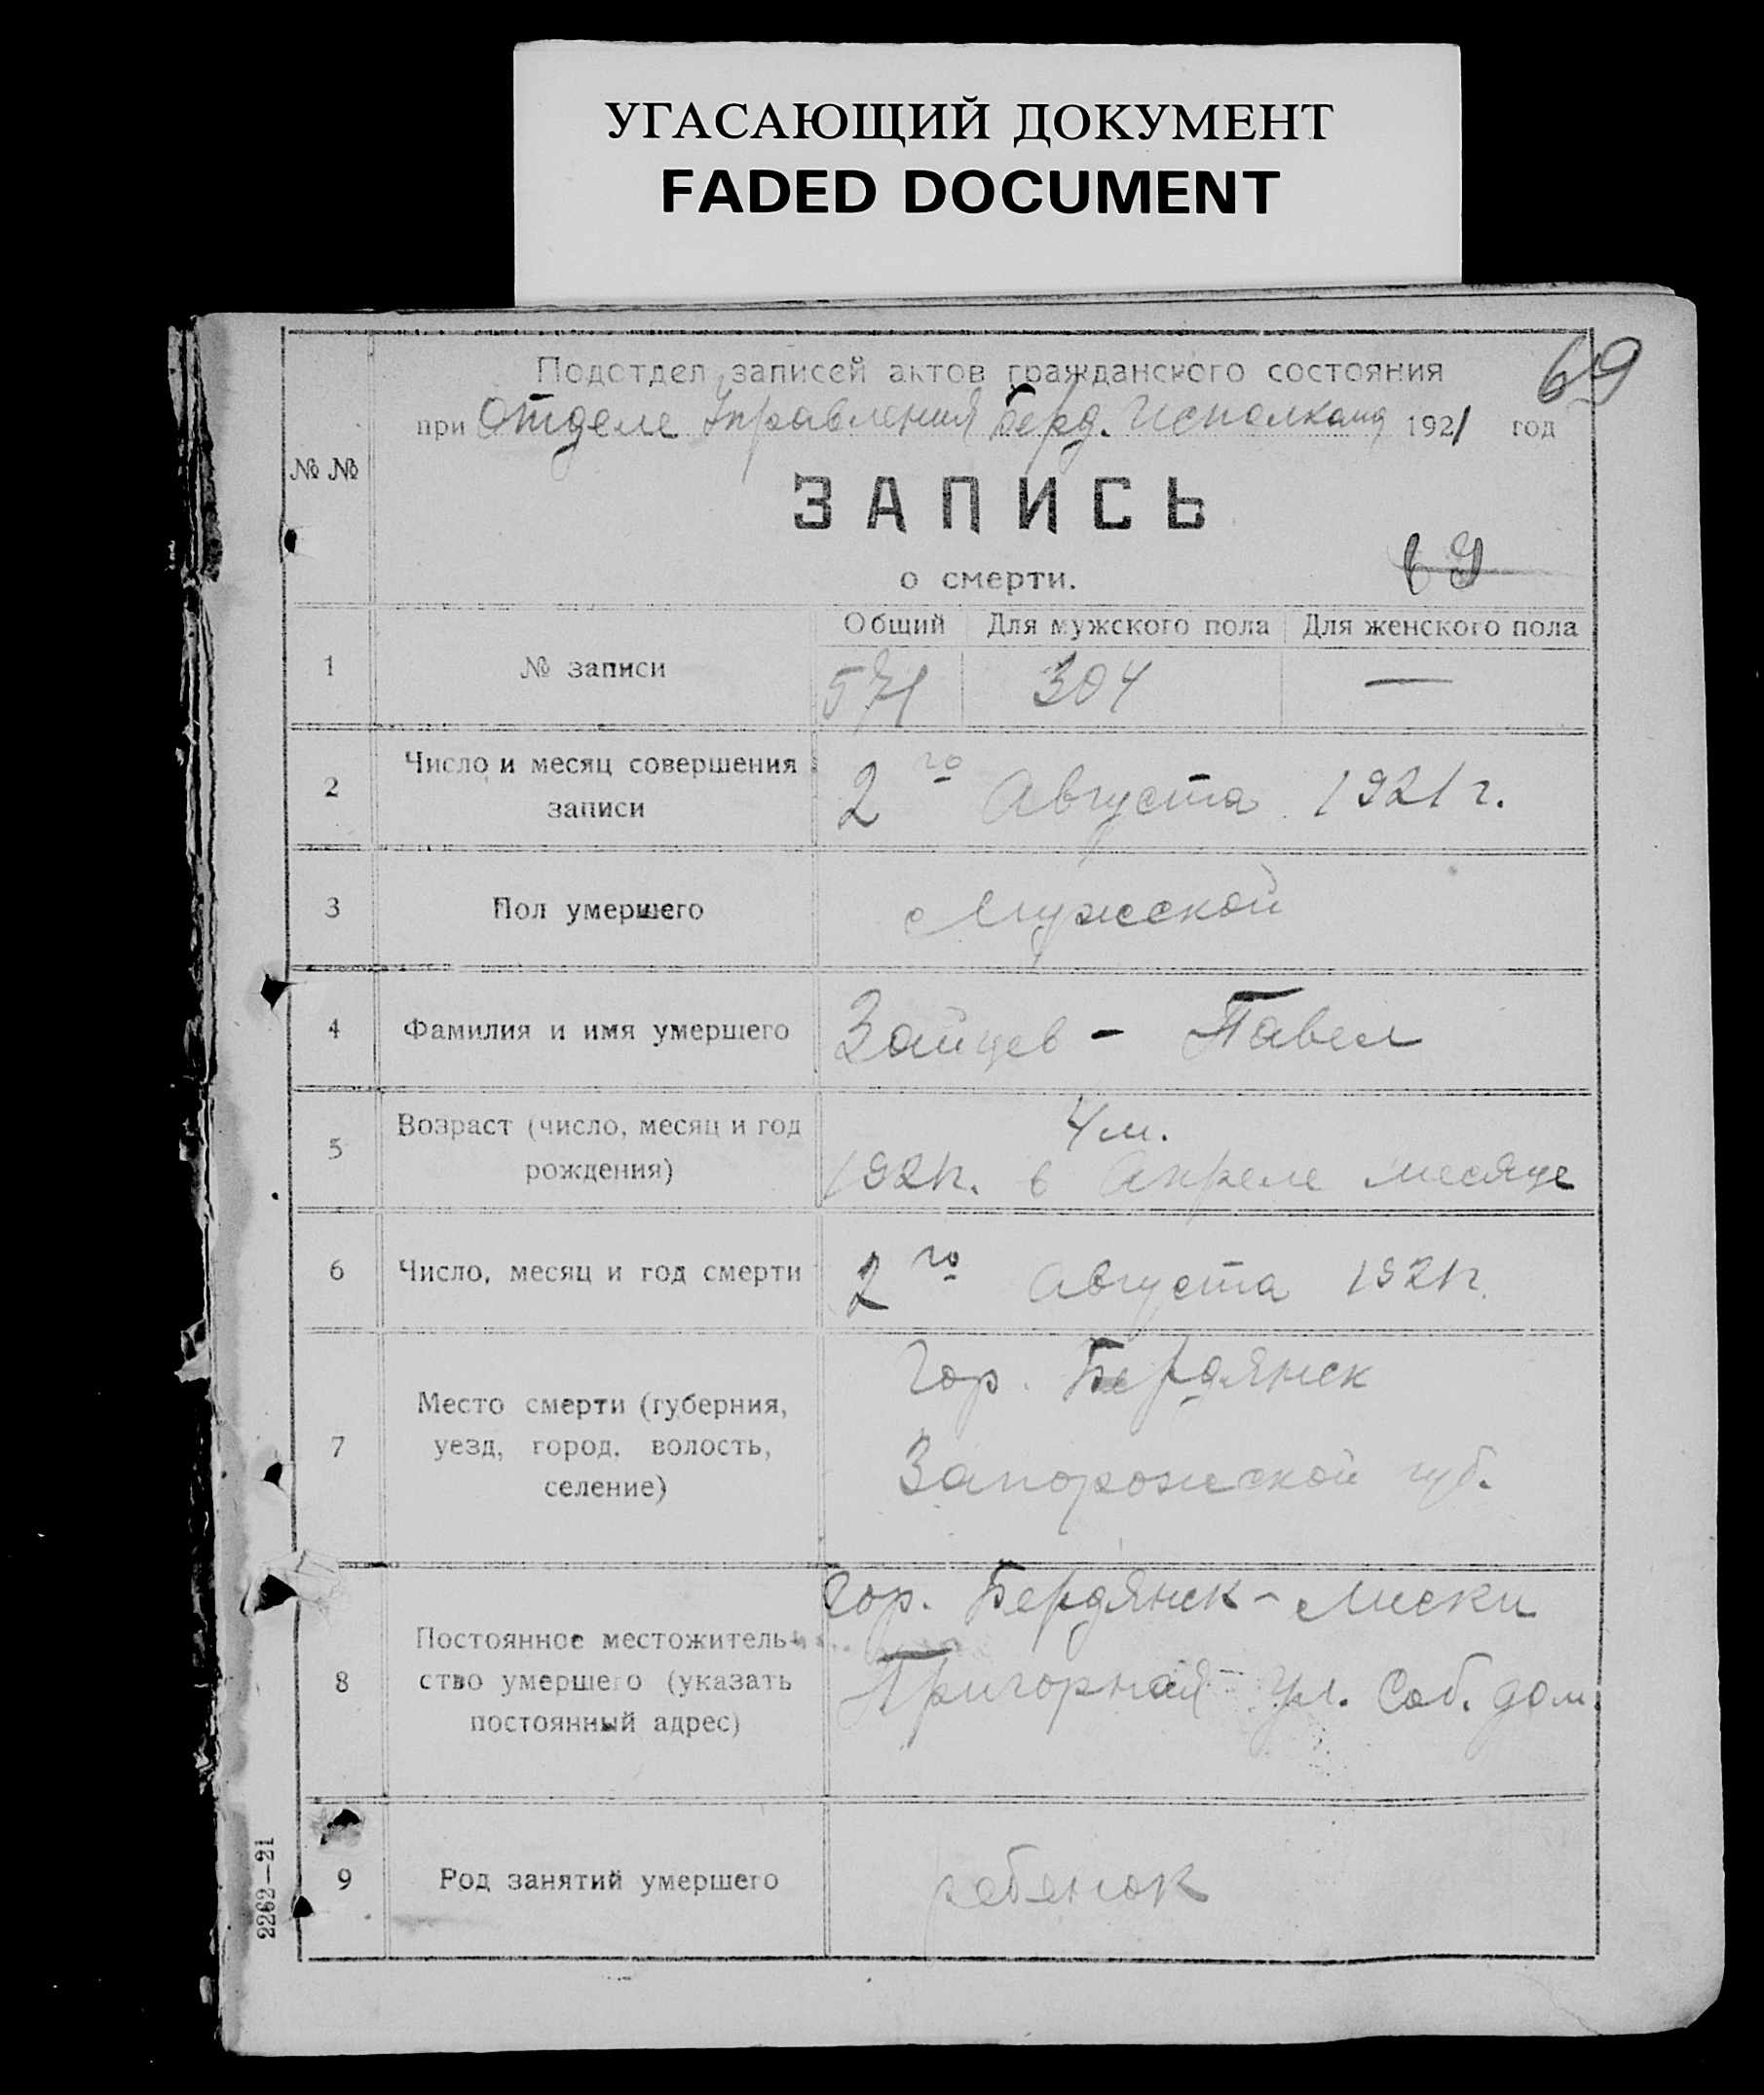 УГАСАЮЩИЙ ДОКУМЕНТ
FADED DOCUMENT
69
Подотдел записей актов гражданского состояния
при Отделе Управления Берд. Исполкома 1921 год
№ №
ЗАПИСЬ
о смерти.
69
Общий Для мужского пола Для женского пола
1 № записи 571 304 —
2 Число и месяц совершения
записи
2го Августа 1921 г.
3 Пол умершего Мужской
4 Фамилия и имя умершего Зайцев - Павел
5 Возраст (число, месяц и год
рождения)
4 м.
1921 г. в Апреле месяце
6 Число, месяц и год смерти 2го Августа 1921 г.
7 Место смерти (губерния,
уезд, город, волость,
селение)
Гор. Бердянск
Запорожской губ.
8 Постоянное местожитель-
ство умершего (указать
постоянный адрес)
Гор. Бердянск - Лиски
Пригорная ул. Соб. дом.
9 Род занятий умершего ребенок
2262—21